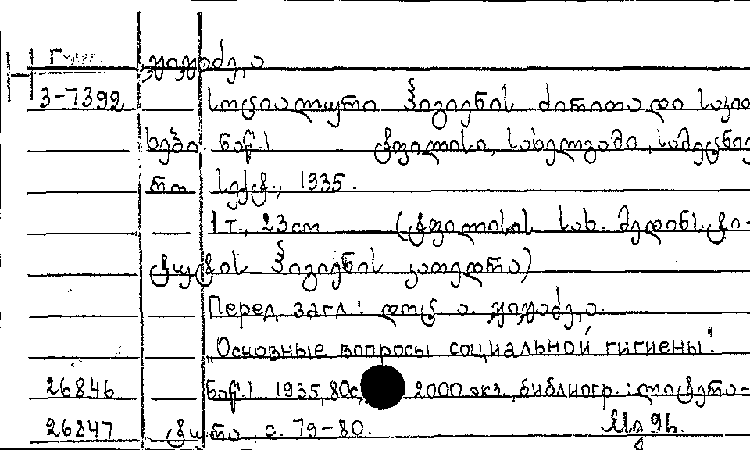 3-7392 სოციალური ჰიგიენის ძირითადი საკით
ხები ნაწ.1 ტფილისი, სახელგამი, სამეცნიე
რო სექტ., 1935.
1 т., 23 см (ტფილისის სახ. მედინსტი-
ტუტის ჰიგიენის კათედრა)
Перед загл.: დოც. ა.
"Основные вопросы социальной гигиены".
26846 ნაწ.1 1935, 80с, 2000 экз., библиогр.: ლიტერა-
26847 ტურა, с. 79-80.